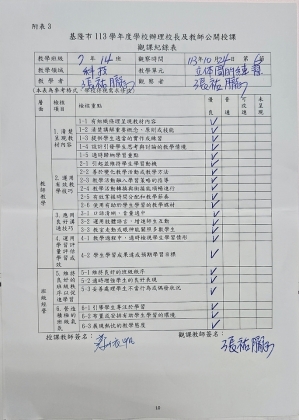 附表 3
基隆市 113 學年度學校辦理校長及教師公開授課
觀課紀錄表
教學班級 7年14班 觀察時間 113年10月24日 第6節
教學領域 科技 教學單元
教學者 張祐鵬 觀察者 張祐鵬
(本表為參考格式
層面 檢核項目 檢核重點 優良 普通 可改進 未呈現
教師教學
1.清楚呈現教材內容
1-1 有組織條理呈現教材內容 ✓
1-2 清楚講解重要概念、原則或技能 ✓
1-3 提供學生適當的實作或練習 ✓
1-4 設計引發學生思考與討論的教學情境 ✓
1-5 適時歸納學習重點 ✓
2.運用有效教學技巧
2-1 引起並維持學生學習動機 ✓
2-2 善於變化教學活動或教學方法 ✓
2-3 教學活動融入學習策略的指導 ✓
2-4 教學活動轉換與銜接能順暢進行 ✓
2-5 有效掌握時間分配和教學節奏 ✓
2-6 使用有助於學生學習的教學媒材 ✓
3.應用良好溝通技巧
3-1 口語清晰、音量適中 ✓
3-2 運用肢體語言,增進師生互動 ✓
3-3 教室走動或眼神能關照多數學生 ✓
4.運用學習評量評估學習成效
4-1 教學過程中,適時檢視學生學習情形 ✓
4-2 學生學習成果達成預期學習目標 ✓
班級經營
5.維持良好的班級秩序以促進學習
5-1 維持良好的班級秩序 ✓
5-2 適時增強學生的良好表現 ✓
5-3 妥善處理學生不當行為或偶發狀況 ✓
6.營造積極的班級氣氛
6-1 引導學生專注於學習 ✓
6-2 布置或安排有助學生學習的環境 ✓
6-3 展現熱忱的教學態度 ✓
授課教師簽名: 觀課教師簽名:
張祐鵬